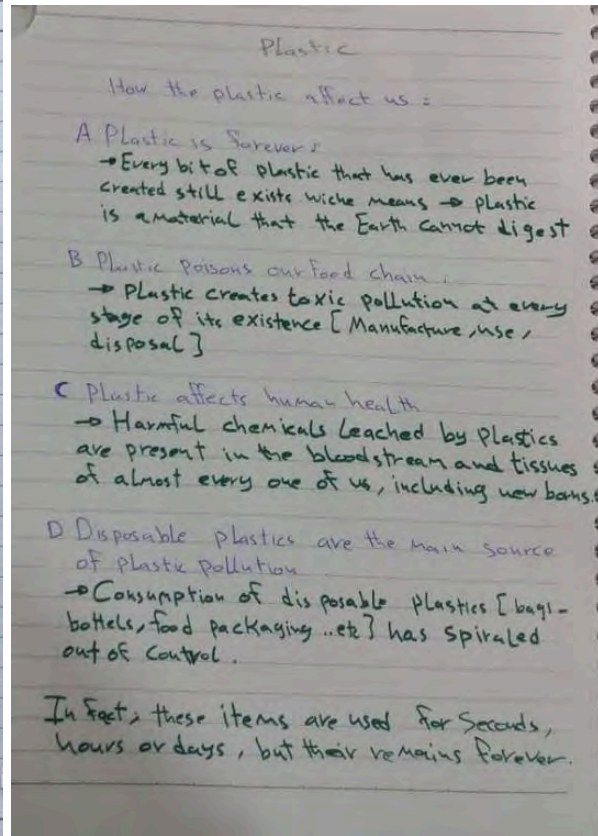 Plastic
How the plastic affect us :
A Plastic is forever :
→ Every bit of plastic that has ever been
created still exists wiche means → plastic
is a material that the Earth cannot digest
B Plastic Poisons our food chain :
→ Plastic creates toxic pollution at every
stage of its existence [ Manufacture, use,
disposal ]
C Plastic affects human health
→ Harmful chemicals Leached by Plastics
are present in the bloodstream and tissues
of almost every one of us, including new borns.
D Disposable plastics are the main source
of plastic pollution
→ Consumption of disposable Plastics [ bags-
bottels, food packaging ..etc ] has spiraled
out of Control.
In fact, these items are used for Seconds,
hours or days, but their remains forever.